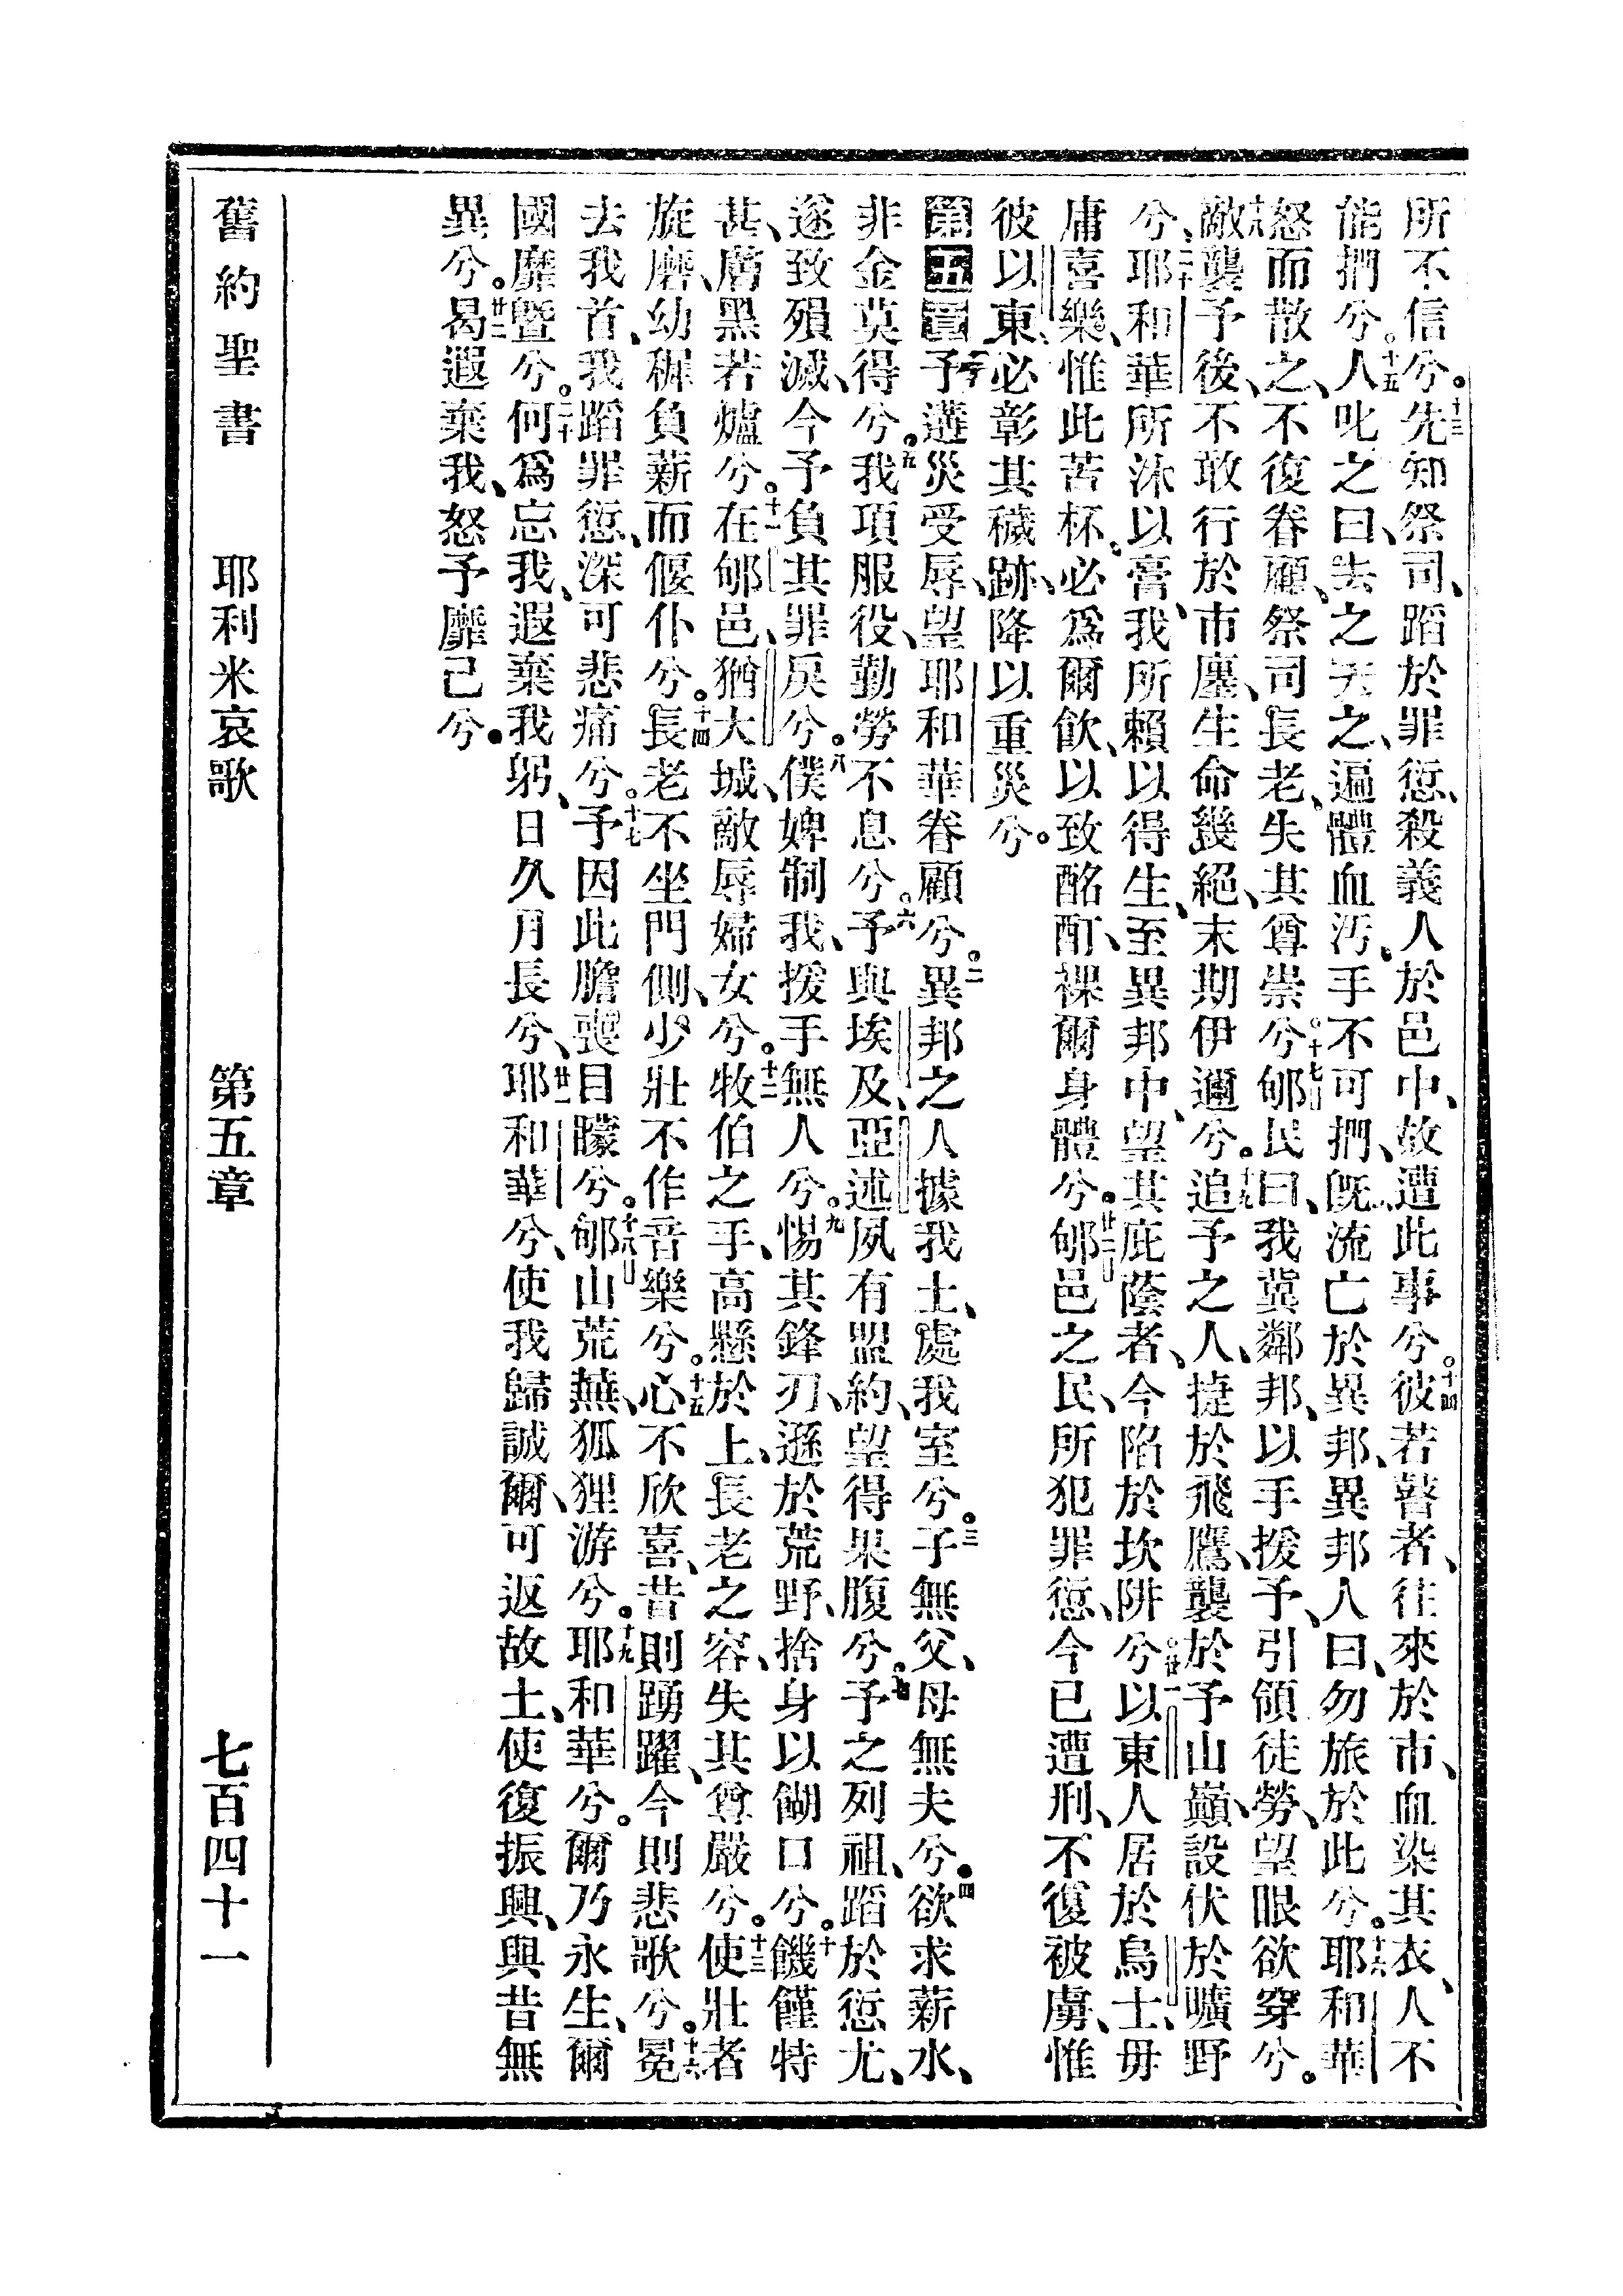 所不信兮。十三先知祭司、蹈於罪愆、殺義人於邑中、故遭此事兮。十四彼若瞽者、往來於市、血染其衣、人不
能捫兮。十五人叱之曰、去之去之、遍體血汚、手不可捫、旣流亡於異邦、異邦人曰、勿旅於此兮。十六耶和華
怒而散之、不復眷顧、祭司長老、失其尊崇兮。十七郇民曰、我冀鄰邦、以手援予、引領徒勞、望眼欲穿兮。
十八敵襲予後、不敢行於市廛、生命幾絕、末期伊邇兮。十九追予之人、捷於飛鷹、襲於予山巔、設伏於曠野
兮、二十耶和華所沐以膏、我所賴以得生、至異邦中、望其庇蔭者、今陷於坎阱兮。廿一以東人居於烏士、毋
庸喜樂、惟此苦杯、必爲爾飮、以致酩酊、裸爾身體兮。廿二郇邑之民、所犯罪愆、今已遭刑、不復被虜、惟
彼以東、必彰其穢跡、降以重災兮。
第五章一予遘災受辱、望耶和華眷顧兮。二異邦之人、據我土、處我室兮。三子無父、母無夫兮。四欲求薪水、
非金莫得兮。五我項服役、勤勞不息兮。六予與埃及、亞述、夙有盟約、望得果腹兮。七予之列祖、蹈於愆尤、
遂致殞滅、今予負其罪戾兮。八僕婢制我、援手無人兮。九惕其鋒刃、遜於荒野、捨身以餬口兮。十饑饉特
甚、膚黑若爐兮。十一在郇邑、猶大城、敵辱婦女兮。十二牧伯之手、高懸於上、長老之容、失其尊嚴兮。十三使壯者
旋磨、幼穉負薪而偃仆兮。十四長老不坐門側、少壯不作音樂兮。十五心不欣喜、昔則踴躍、今則悲歌兮。十六冕
去我首、我蹈罪愆、深可悲痛兮。十七予因此膽喪目矇兮。十八郇山荒蕪、狐狸游兮。十九耶和華兮。爾乃永生、爾
國靡曁兮。二十何爲忘我、遐棄我躬、日久月長兮、廿一耶和華兮、使我歸誠爾、可返故土、使復振興、與昔無
異兮。廿二曷遐棄我、怒予靡已兮。
舊約聖書 耶利米哀歌 第五章 七百四十一